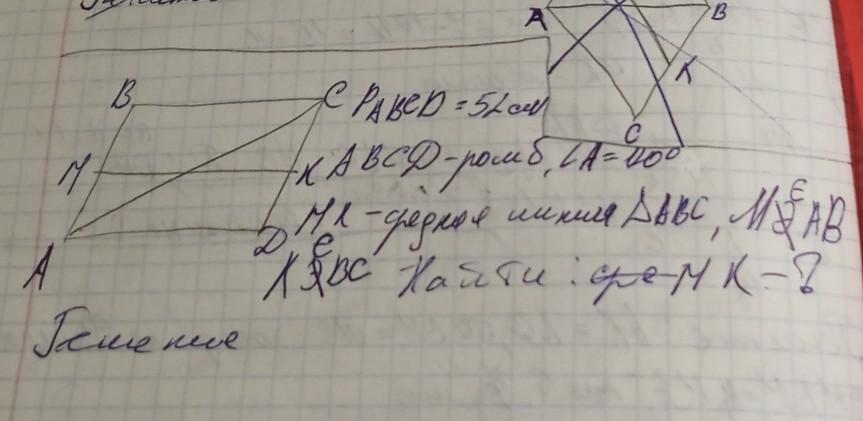 A B
K
C
B C P_ABCD = 52см
M K ABCD - ромб, ∠A = 40°
A D MK - средняя линия ΔABC, M ∈ AB
K ∈ BC Найти : MK - ?
Решение